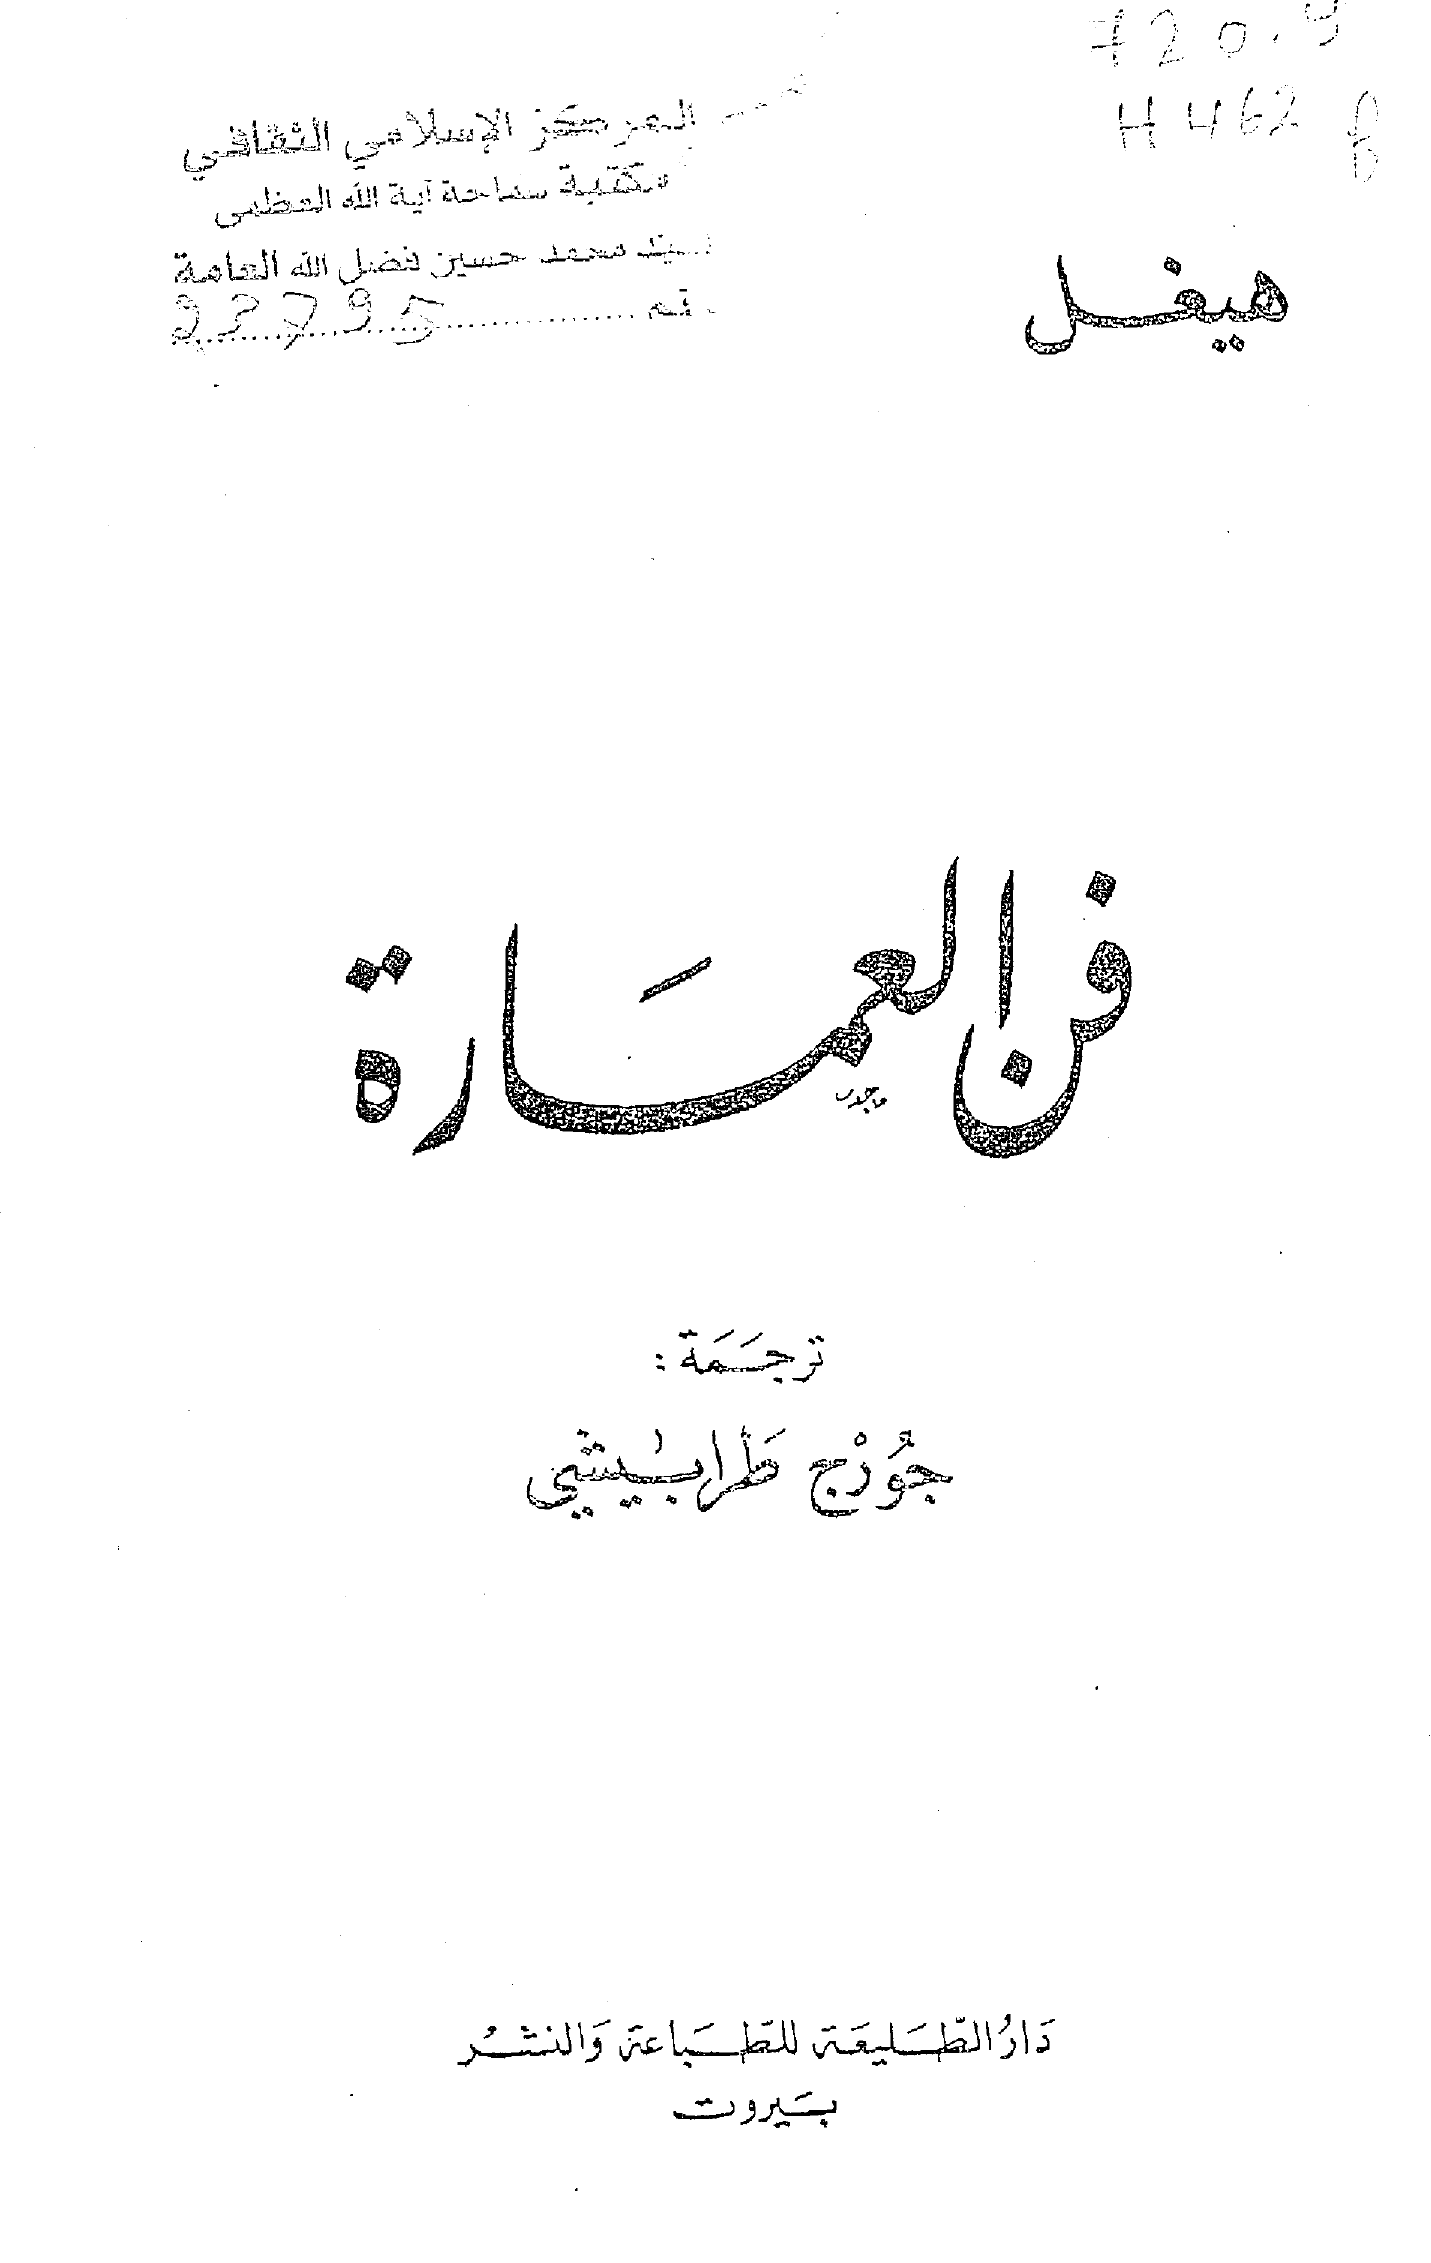 720.9
H462
المركز الإسلامي الثقافي
مكتبة سماحة آية الله العظمى
السيد محمد حسين فضل الله العامة
هيغل
فن العمارة
ترجَمَة :
جُورْج طَرابيشي
دَارُ الطّليعَة للطّبَاعة وَالنشرُ
بَيروت